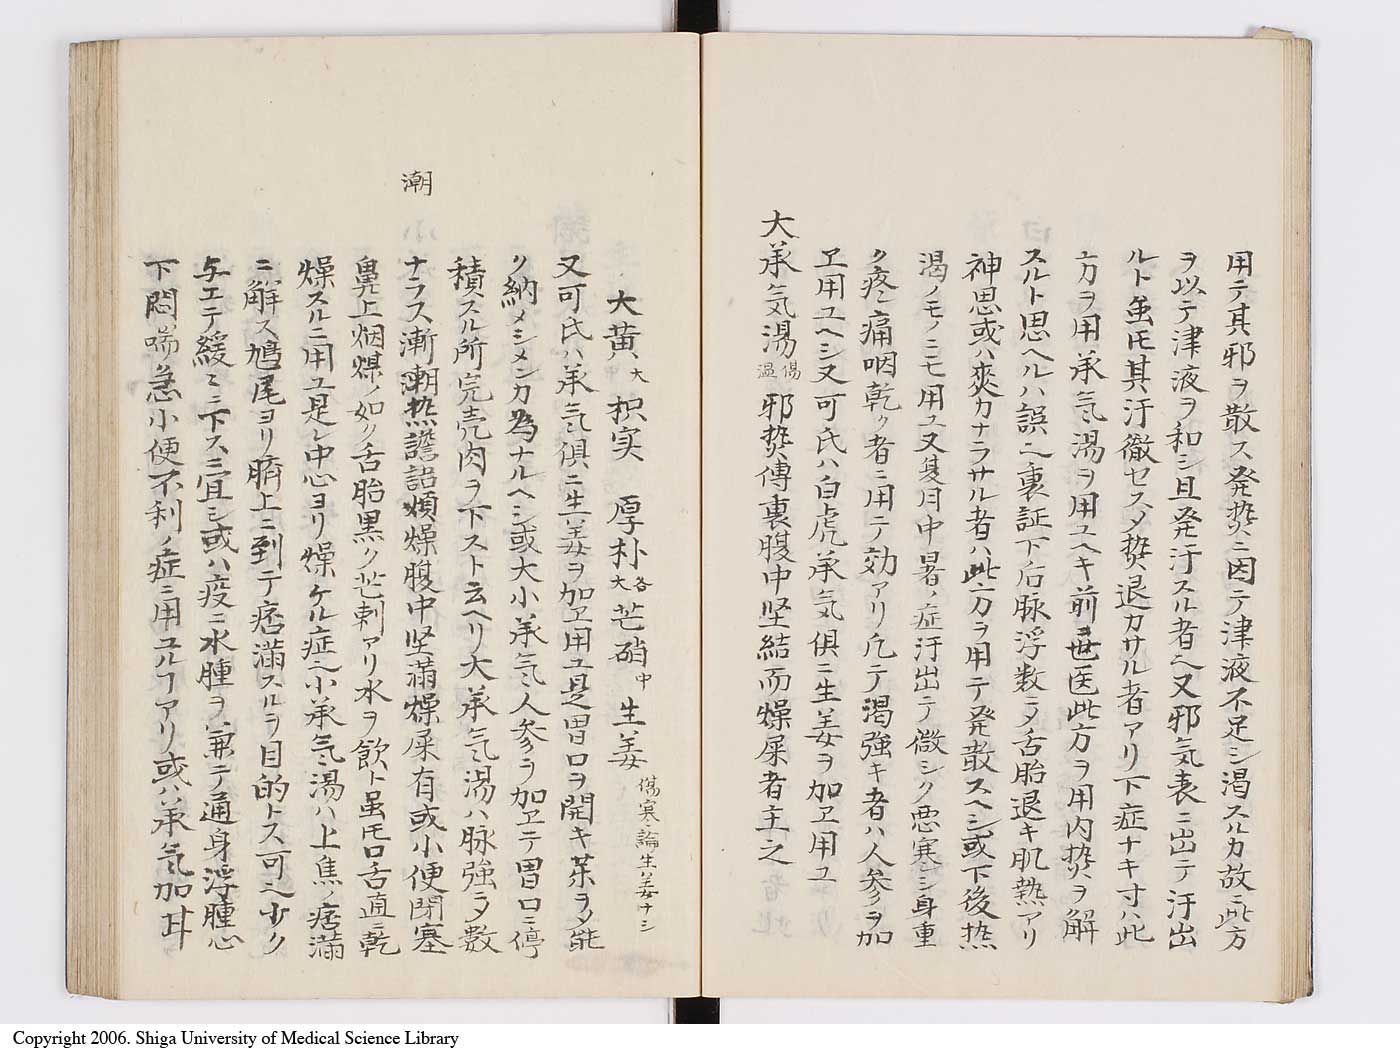 用テ其邪ヲ散ス発熱ニ因テ津液不足シ渇スルカ故ニ此方
ヲ以テ津液ヲ和シ且発汗スル者ヘ又邪気表ニ出テ汗出
ルト虽𪜈其汗徹セスメ熱退カサル者アリ下症ナキ寸ハ此
方ヲ用承气湯ヲ用ユヘキ前ヨ世医此方ヲ用内熱ヲ解
スルト思ヘルハ誤ヘ裏証下后脉浮数ニメ舌胎退キ肌熱アリ
神思或ハ爽カナラサル者ハ此方ヲ用テ発散スヘシ或下後热
渇ノモノニモ用ユ又夏月中暑ノ症汗出テ微シク悪寒シ身重
ク疼痛咽乾ク者ニ用テ効アリ凢テ渇強キ者ハ人参ヲ加
ヱ用ユヘシ又可氏ハ白虎承気俱ニ生姜ヲ加ヱ用ユ
大承气湯 傷温 邪熱傳裏腹中坚結而燥屎者主之
大黄大 枳实 厚朴各大 芒硝中 生姜 傷寒論生姜ナシ
又可氏ハ承气俱ニ生姜ヲ加ヱ用ユ是胃口ヲ開キ薬ヲメ能
ク納メシメンカ為ナルヘシ或大小承气人参ヲ加ヱテ胃口ニ停
積スル所完壳肉ヲ下スト云ヘリ大承气湯ハ脉強ク数
潮
ナラス漸潮热譫語煩燥腹中坚满燥屎有或小便閉塞
鼻上烟煤ノ如ク舌胎黒ク芒刺アリ水ヲ飲ト虽𪜈口舌直ニ乾
燥スルニ用ユ是レ中心ヨリ燥ケル症ヘ小承气湯ハ上焦ノ痞满
ニ解ス鳩尾ヨリ臍上ニ到テ痞满スルヲ目的トス可ヘ少ク
与エテ緩ミニ下スニ宜シ或ハ疫ニ水腫ヲ兼テ通身浮腫心
下悶喘急小便不利ノ症ニ用ユルヿアリ或ハ承气加甘
Copyright 2006. Shiga University of Medical Science Library